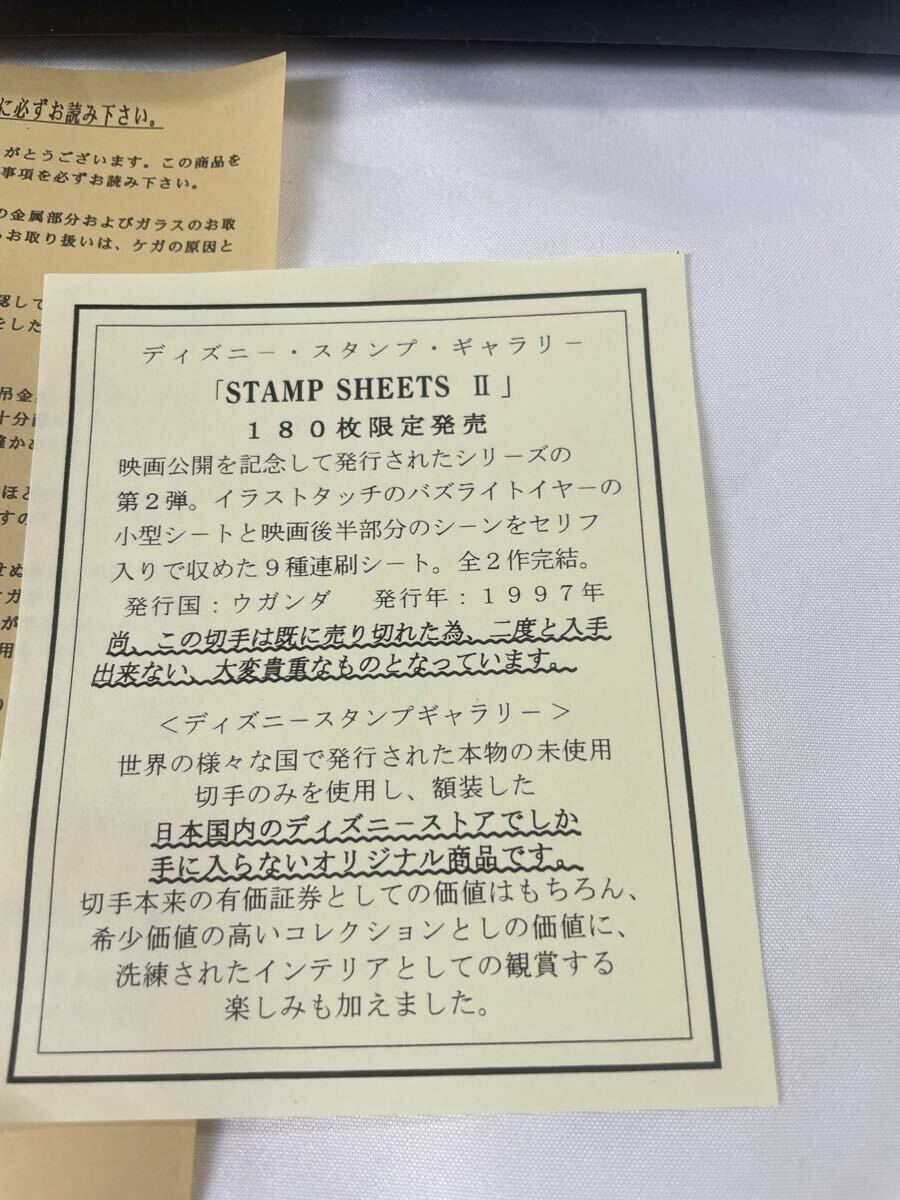 に必ずお読み下さい。
がとうございます。この商品を
事項を必ずお読み下さい。
の金属部分およびガラスのお取
お取り扱いは、ケガの原因と
認して
をした
吊金
十分
確かめ
ほど
すの
せぬ
ケガ
が
用
ディズニー・スタンプ・ギャラリー
「STAMP SHEETS Ⅱ」
180枚限定発売
映画公開を記念して発行されたシリーズの
第2弾。イラストタッチのバズライトイヤーの
小型シートと映画後半部分のシーンをセリフ
入りで収めた9種連刷シート。全2作完結。
発行国：ウガンダ　発行年：1997年
尚、この切手は既に売り切れた為、二度と入手
出来ない、大変貴重なものとなっています。
＜ディズニースタンプギャラリー＞
世界の様々な国で発行された本物の未使用
切手のみを使用し、額装した
日本国内のディズニーストアでしか
手に入らないオリジナル商品です。
切手本来の有価証券としての価値はもちろん、
希少価値の高いコレクションとしの価値に、
洗練されたインテリアとしての観賞する
楽しみも加えました。